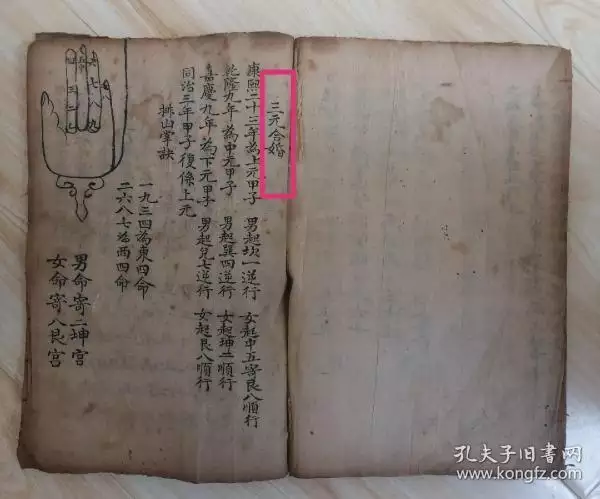 三元合婚
康熙二十三年為上元甲子 男起坎一逆行 女起中五寄艮八順行
乾隆九年為中元甲子 男起巽四逆行 女起坤二順行
嘉慶九年為下元甲子 男起兌七逆行 女起艮八順行
同治三年甲子復係上元
排山掌訣
一九三四為東四命
二六八七為西四命
男命寄二坤宮
女命寄八艮宮
孔夫子旧书网
www.kongfz.com